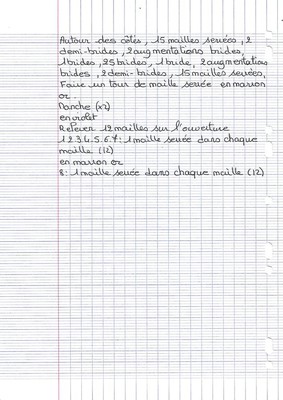 Autour des côtés, 15 mailles serrées, 2
demi-brides, 2 augmentations brides,
1 brides, 25 brides, 1 bride, 2 augmentations
brides, 2 demi-brides, 15 mailles serrées,
Faire un tour de maille serrée en marron
or.
Manche (x2)
en violet
Relever 12 mailles sur l'ouverture
1 2 3. 4. 5. 6. 7: 1 maille serrée dans chaque
maille (12)
en marron or
8: 1 maille serrée dans chaque maille (12)